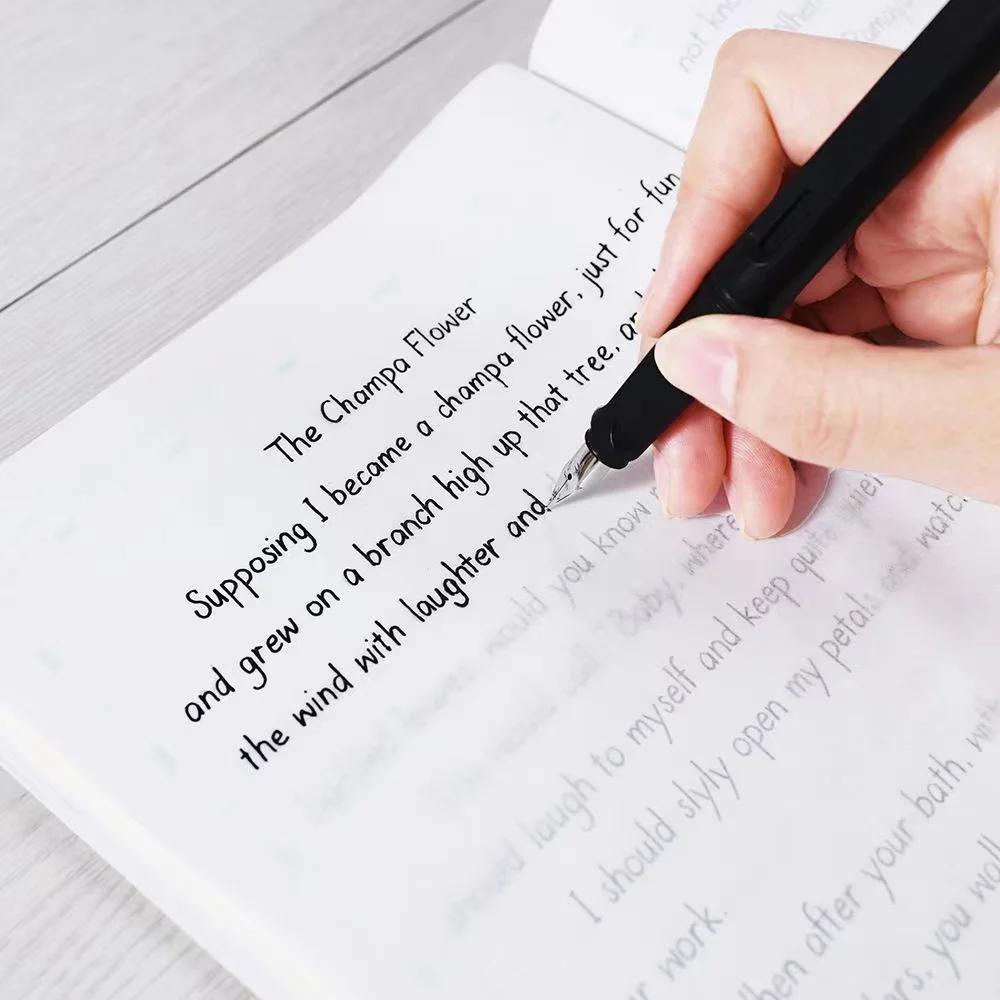 not kno
The Champa Flower
Supposing I became a champa flower, just for fun
and grew on a branch high up that tree, an
the wind with laughter and
would you know
Baby, where
should laugh to myself and keep quite quiet
I should slyly open my petals and watch
r work.
hen after your bath, with
rs, you wal